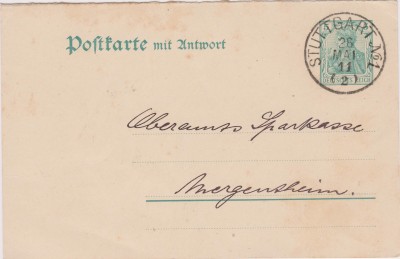 Postkarte mit Antwort
STUTTGART No1
26
MAI
11
2
Oberamts Sparkasse
Mergentheim.